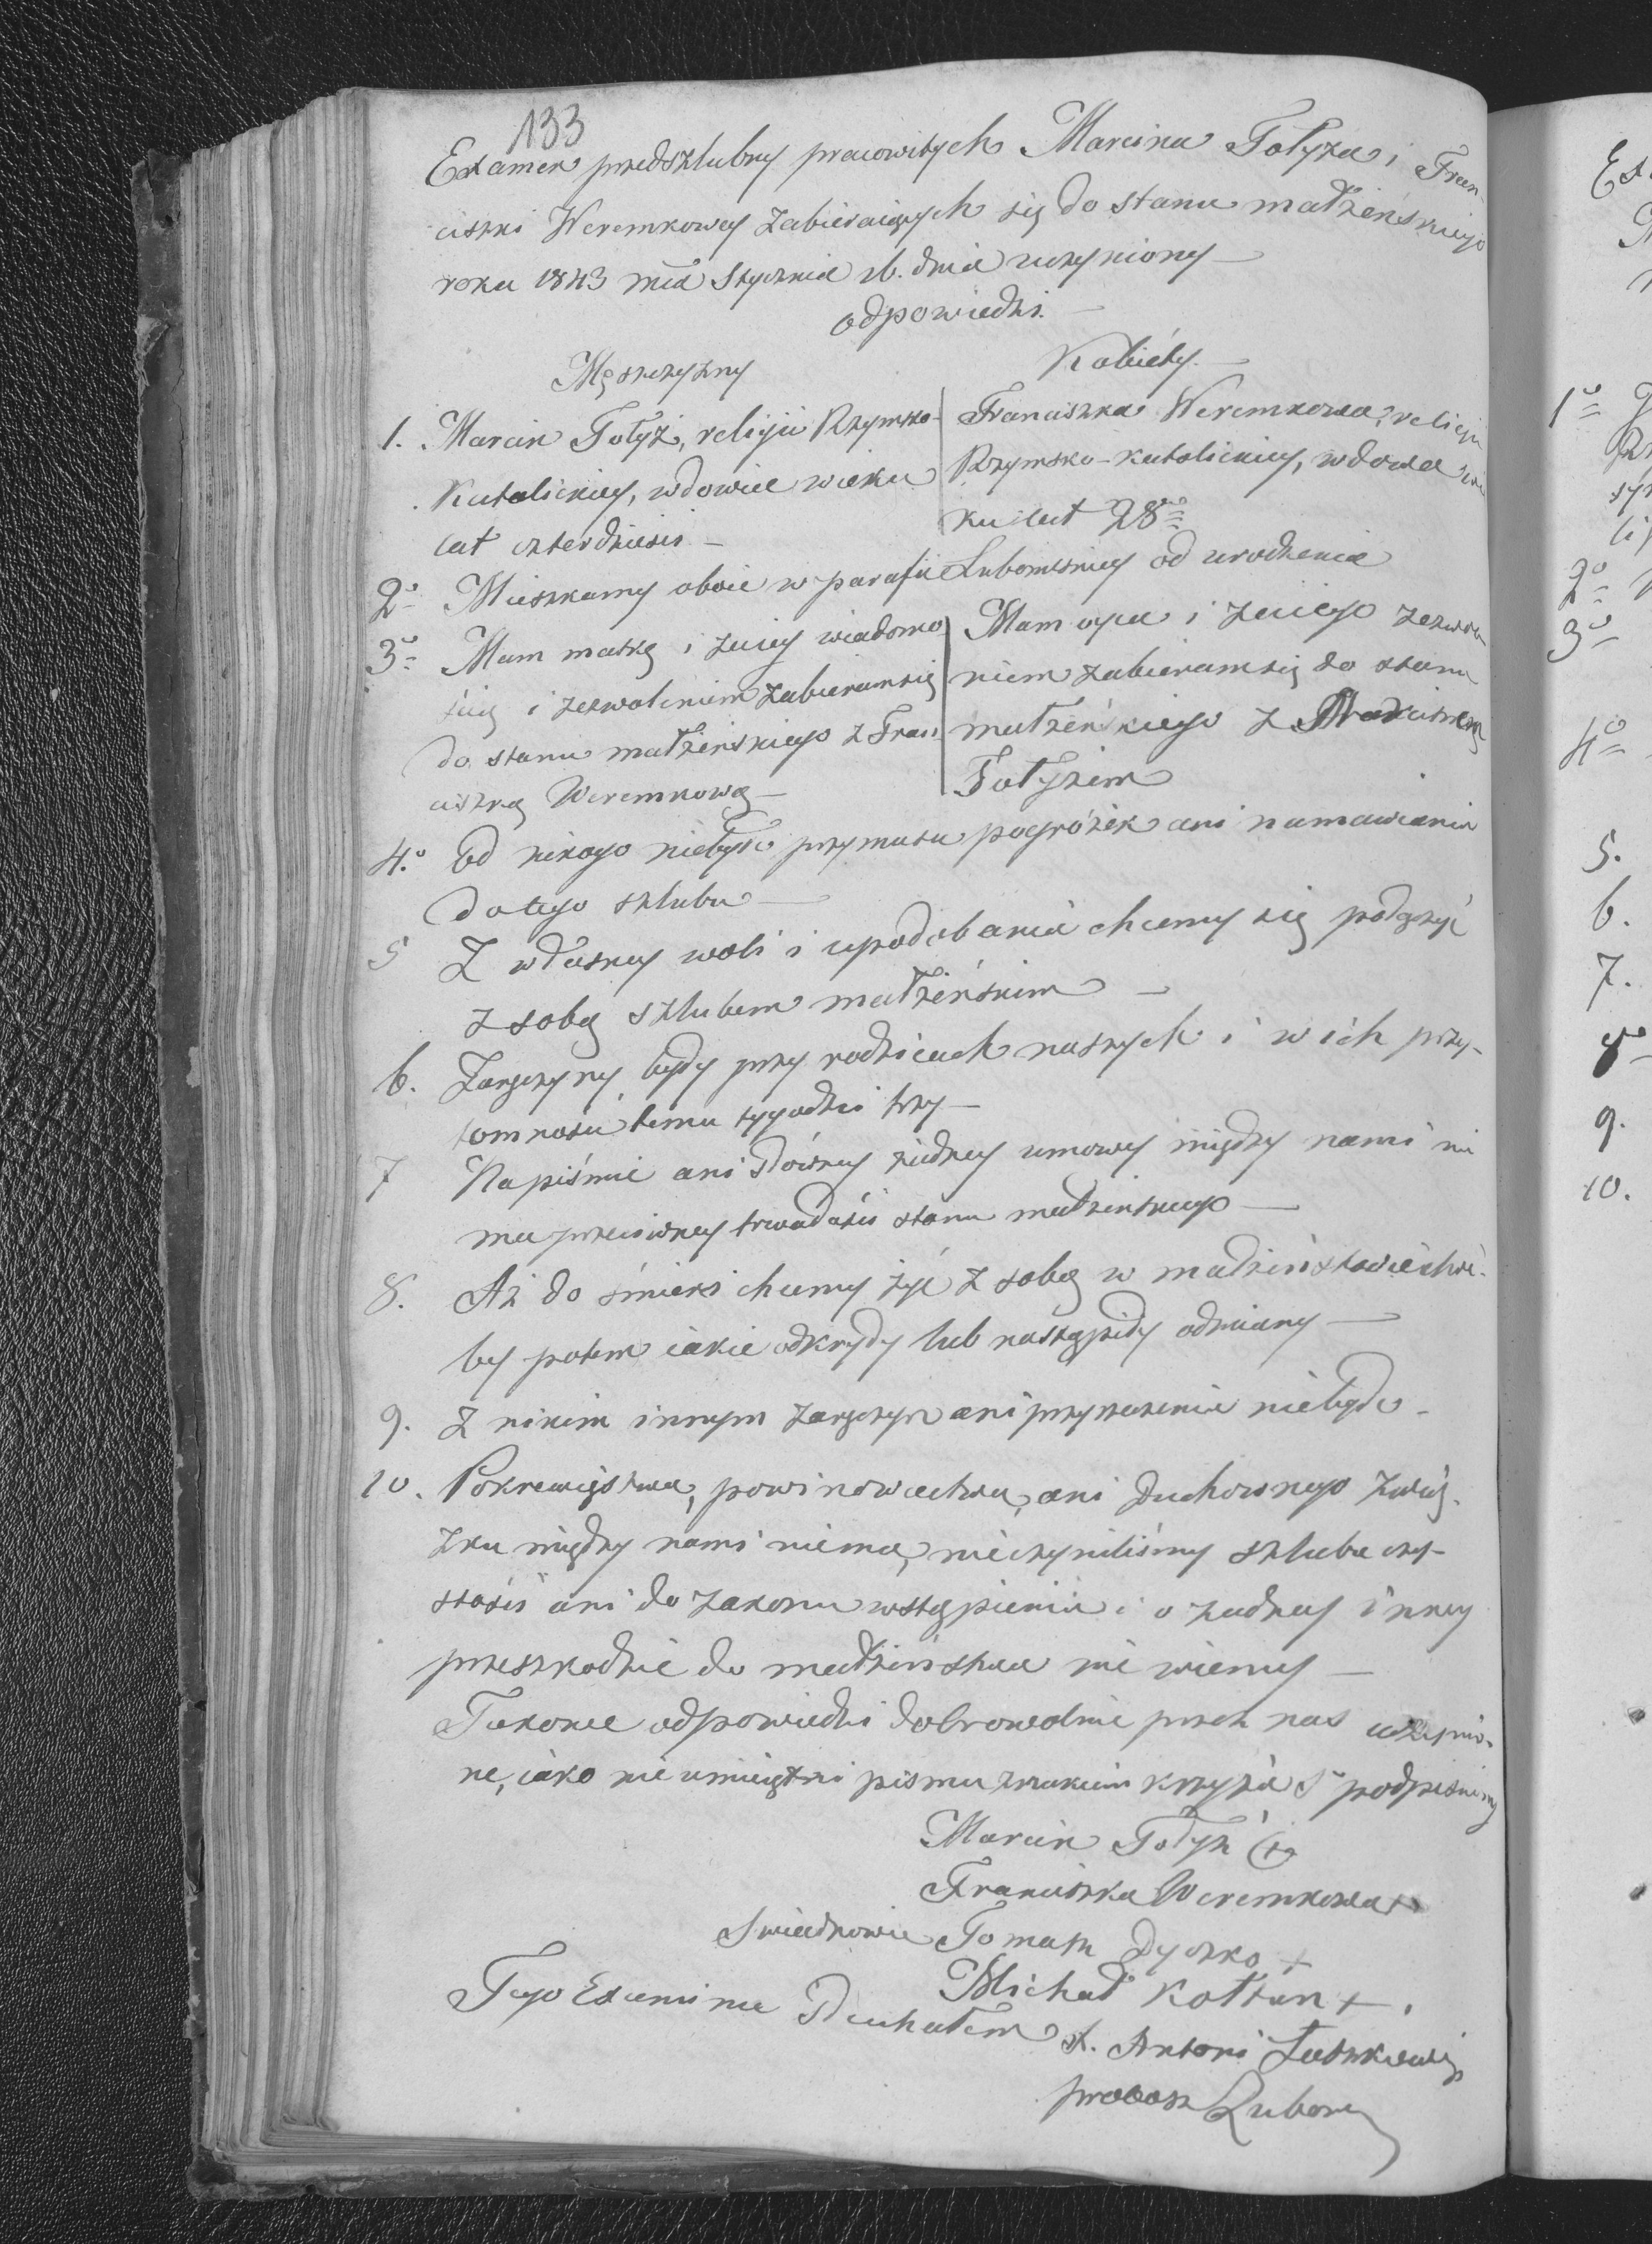 133
Examen przedszlubny pracowitych Marcina Tołyża i Fran-
ciszki Weremkowey zabieraiących się do stanu małżeńskiego
roku 1843 mca Stycznia 16. dnia uczyniony —
odpowiedzi. —
Męszczyzny
Kobiéty. —
1. Marcin Tołyż, religii Rzymsko-
Katolickiey, wdowiec wieku
lat czterdzieści —
Franciszka Weremkowa, religii
Rzymsko-Katolickiey, wdowa wie
ku lat 28
2° Mieszkamy oboie w parafii Lubomskiey od urodzenia
3° Mam matkę i zaiey wiadomo
ścią i zezwoleniem zabieram się
do stanu małżeńskiego z Fran
ciszką Weremkową —
Mam oyca i zaiego zezwole-
niem zabieram się do stanu
małżeńskiego z
Tołyżem
4.° Od nikogo niebyło przymusu pogróżek ani namawiania
do tego szlubu —
5 Z własney woli i upodobania chcemy się połączyć
z sobą szlubem małżeńskim —
6. Zaręczyny były przy rodzicach naszych i w ich przy-
tomności temu tygodni trzy —
7 Na piśmie ani słówney żadney umowy między nami nie
ma przeciwney trwałości stanu małżeńskiego —
8. Aż do śmierci chcemy żyć z sobą w małżeństwie choć-
by potem iakie odkryły lub nastąpiły odmiany —
9. Z nikim innym zaręczyn ani przyrzeczenia niebyło —
10. Pokrewięstwa, powinowactwa, ani Duchownego związ-
zku między nami niema, nieczyniliśmy szlubu czy-
stości ani do zakonu wstąpienia i o żadney inney
przeszkodzie do małżeństwa nie wiemy —
Takowe odpowiedzi dobrowolnie przez nas uczynio-
ne, iako nie umieiętni pisma znakiem krzyża S° podpisuiemy
Marcin Tołyż +
Franciszka Weremkowa +
Swiadkowie Tomasz Dyczko +
Michał Kołtun +.
Tego Examinu Słuchałem X. Antoni
probosz Lubom